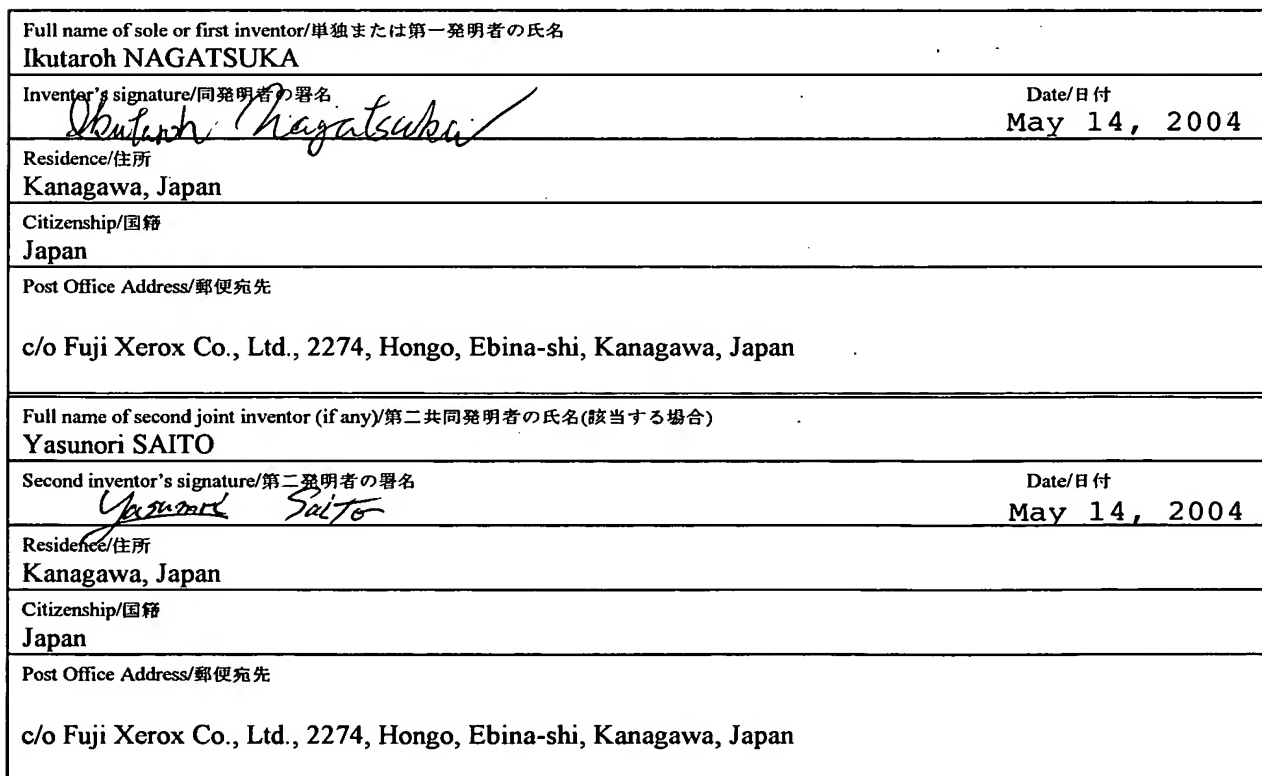 Full name of sole or first inventor/単独または第一発明者の氏名
Ikutaroh NAGATSUKA
Inventor's signature/同発明者の署名
Date/日付
Ikutaroh Nagatsuka
May 14, 2004
Residence/住所
Kanagawa, Japan
Citizenship/国籍
Japan
Post Office Address/郵便宛先
c/o Fuji Xerox Co., Ltd., 2274, Hongo, Ebina-shi, Kanagawa, Japan
Full name of second joint inventor (if any)/第二共同発明者の氏名(該当する場合)
Yasunori SAITO
Second inventor's signature/第二発明者の署名
Date/日付
Yasunori Saito
May 14, 2004
Residence/住所
Kanagawa, Japan
Citizenship/国籍
Japan
Post Office Address/郵便宛先
c/o Fuji Xerox Co., Ltd., 2274, Hongo, Ebina-shi, Kanagawa, Japan